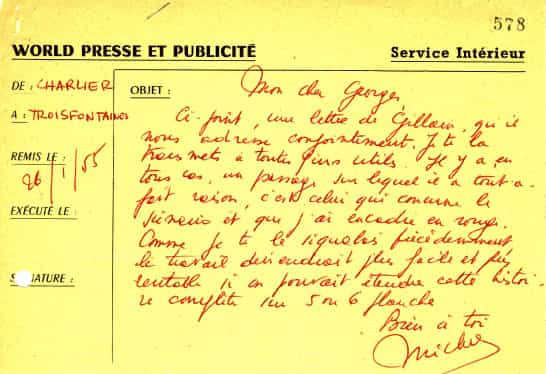 578
WORLD PRESSE ET PUBLICITÉ Service Intérieur
DE : CHARLIER
A : TROISFONTAINES
REMIS LE :
26/1/55
EXÉCUTÉ LE :
SIGNATURE :
OBJET : Mon cher Georges,
Ci-joint, une lettre de Gillain, qu'il
nous adresse conjointement. Je te la
transmets à toutes fins utiles. Il y a en
tous cas, un passage sur lequel il a tout-à-
fait raison, c'est celui qui concerne le
scénario et que j'ai encadré en rouge.
Comme je te le signalais précédemment
le travail deviendrait plus facile et plus
rentable si on pouvait étendre cette histoi-
re complète sur 5 ou 6 planche
Bien à toi
Michel